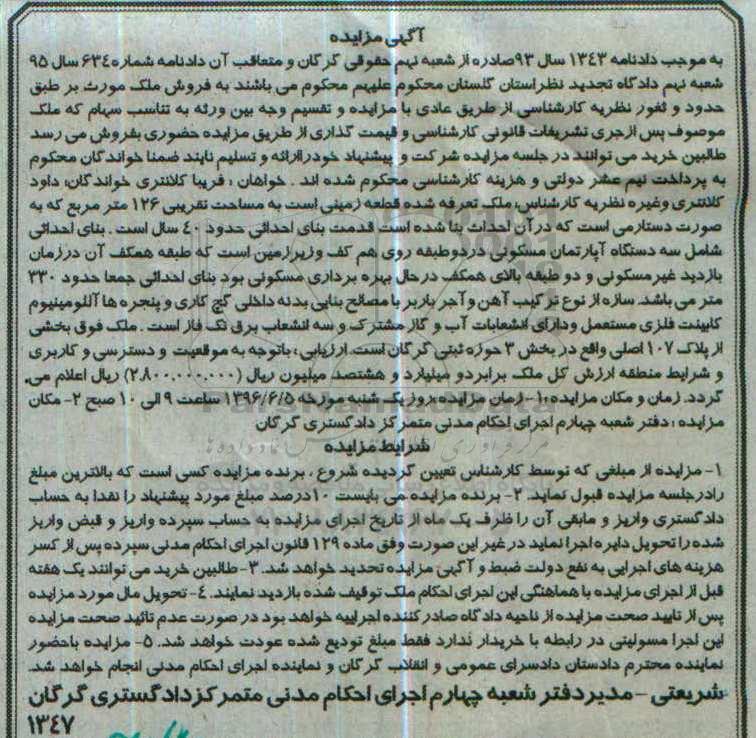 آگهی مزایده
به موجب دادنامه ۱۳۴۳ سال ۹۳صادره از شعبه نهم حقوقی گرگان و متعاقب آن دادنامه شماره۶۳۴ سال ۹۵
شعبه نهم دادگاه تجدید نظراستان گلستان محکوم علیهم محکوم می باشند به فروش ملک مورث بر طبق
حدود و ثغور نظریه کارشناسی از طریق عادی با مزایده و تقسیم وجه بین ورثه به تناسب سهام که ملک
موصوف پس ازجری تشریفات قانونی کارشناسی و قیمت گذاری از طریق مزایده حضوری بفروش می رسد
طالبین خرید می توانند در جلسه مزایده شرکت و پیشنهاد خودراارائه و تسلیم نایند ضمنا خواندگان محکوم
به پرداخت نیم عشر دولتی و هزینه کارشناسی محکوم شده اند . خواهان : فریبا کلانتری خواندگان: داود
کلانتری وغیره نظریه کارشناس: ملک تعرفه شده قطعه زمینی است به مساحت تقریبی ۱۲۶ متر مربع که به
صورت دستارمی است که درآن احداث بنا شده است قدمت بنای احداثی حدود ۴۰ سال است . بنای احداثی
شامل سه دستگاه آپارتمان مسکونی دردوطبقه روی هم کف وزیرزمین است که طبقه همکف آن درزمان
بازدید غیرمسکونی و دو طبقه بالای همکف درحال بهره برداری مسکونی بود بنای احداثی جمعا حدود ۳۳۰
متر می باشد. سازه از نوع ترکیب آهن وآجر باربر با مصالح بنایی بدنه داخلی گچ کاری و پنجره ها آلومینیوم
کابینت فلزی مستعمل ودارای انشعابات آب و گاز مشترک و سه انشعاب برق تک فاز است . ملک فوق بخشی
از پلاک ۱۰۷ اصلی واقع در بخش ۳ حوزه ثبتی گرگان است. ارزیابی : باتوجه به موقعیت و دسترسی و کاربری
و شرایط منطقه ارزش کل ملک برابردو میلیارد و هشتصد میلیون ریال (۲.۸۰۰.۰۰۰.۰۰۰) ریال اعلام می
گردد. زمان و مکان مزایده :۱- زمان مزایده :روز یک شنبه مورخه ۱۳۹۶/۶/۵ ساعت ۹ الی ۱۰ صبح ۲- مکان
مزایده : دفتر شعبه چهارم اجرای احکام مدنی متمرکز دادگستری گرگان
شرایط مزایده
۱- مزایده از مبلغی که توسط کارشناس تعیین گردیده شروع ، برنده مزایده کسی است که بالاترین مبلغ
رادرجلسه مزایده قبول نماید. ۲- برنده مزایده می بایست ۱۰درصد مبلغ مورد پیشنهاد را نقدا به حساب
دادگستری واریز و مابقی آن را ظرف یک ماه از تاریخ اجرای مزایده به حساب سپرده واریز و قبض واریز
شده را تحویل دایره اجرا نماید در غیر این صورت وفق ماده ۱۲۹ قانون اجرای احکام مدنی سپرده پس از کسر
هزینه های اجرایی به نفع دولت ضبط و آگهی مزایده تجدید خواهد شد. ۳- طالبین خرید می توانند یک هفته
قبل از اجرای مزایده با هماهنگی این اجرای احکام ملک توقیف شده بازدید نمایند. ۴- تحویل مال مورد مزایده
پس از تایید صحت مزایده از ناحیه دادگاه صادر کننده اجراییه خواهد بود در صورت عدم تائید صحت مزایده
این اجرا مسولیتی در رابطه با خریدار ندارد فقط مبلغ تودیع شده عودت خواهد شد. ۵- مزایده باحضور
نماینده محترم دادستان دادسرای عمومی و انقلاب گرگان و نماینده اجرای احکام مدنی انجام خواهد شد.
شریعتی - مدیر دفتر شعبه چهارم اجرای احکام مدنی متمرکز دادگستری گرگان
۱۳۴۷